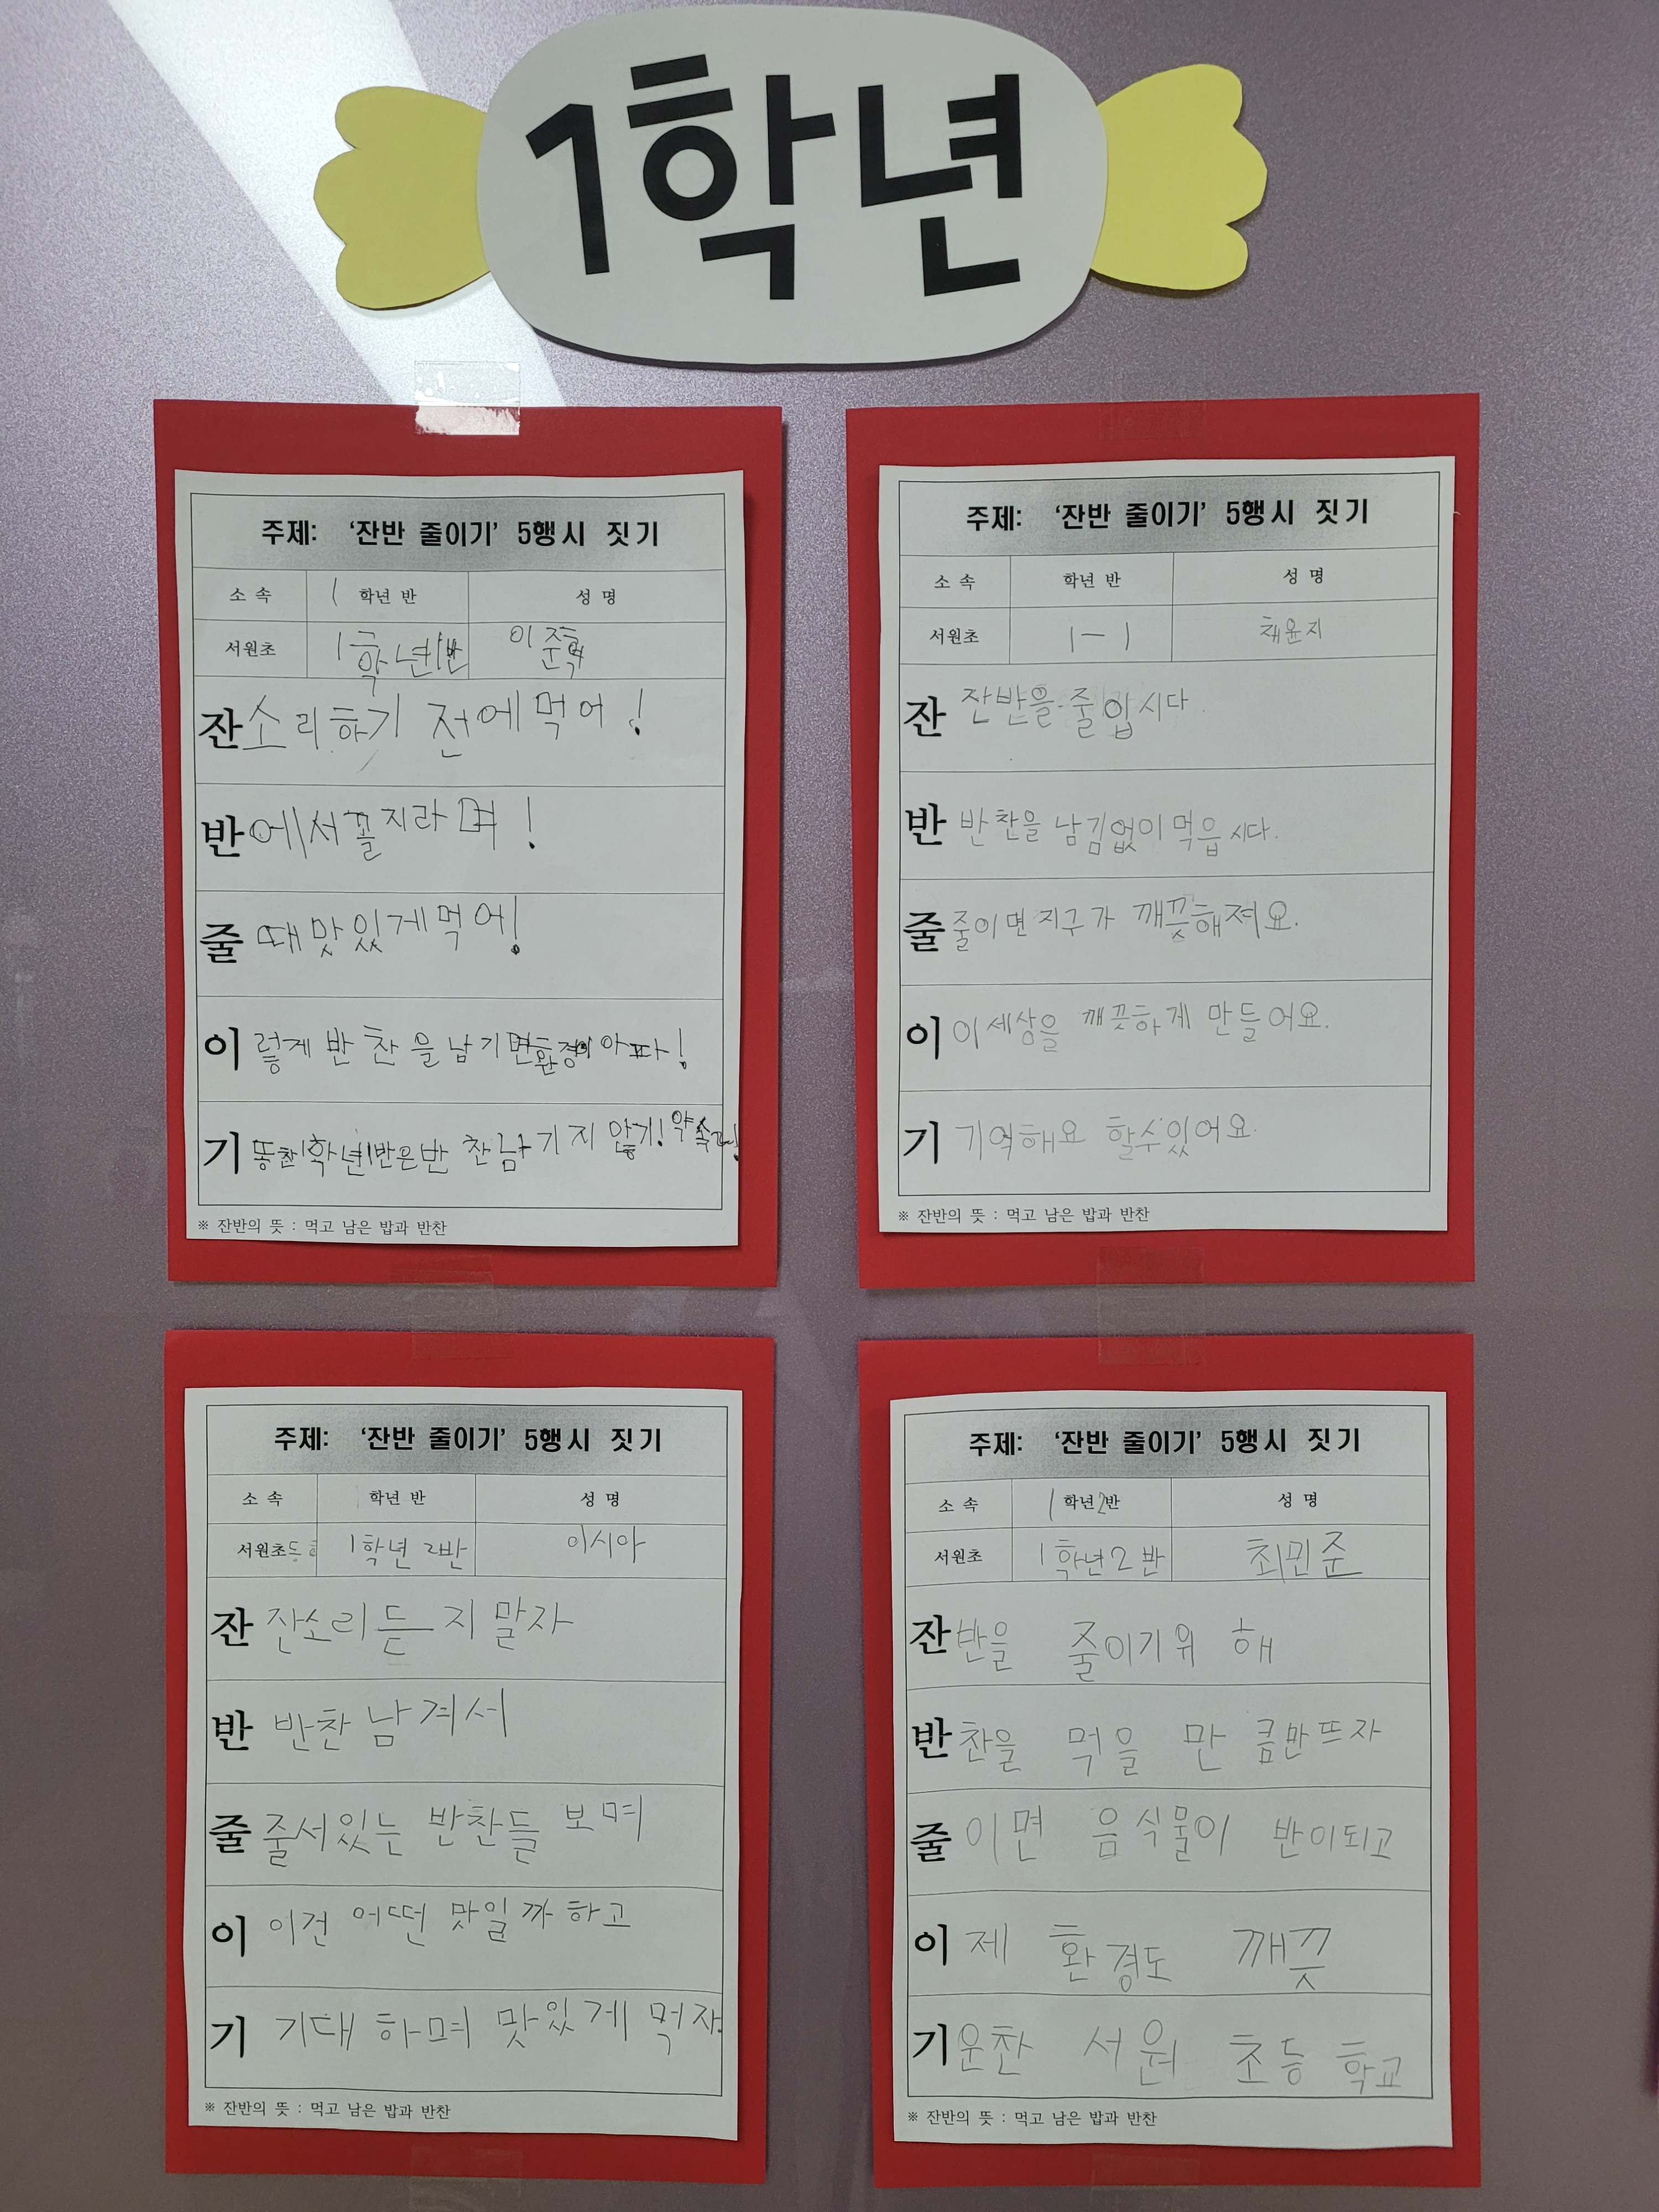 1학년
주제: '잔반 줄이기' 5행시 짓기
소 속 1 학년 반 성 명
서원초 1학년1반 이준혁
잔소리하기 전에먹어!
반에서꼴지라며!
줄때맛있게먹어!
이렇게 반찬을남기면환경이아파!
기똥찬1학년1반은반찬남기지않기! 약속해!
※ 잔반의 뜻 : 먹고 남은 밥과 반찬
주제: '잔반 줄이기' 5행시 짓기
소 속 학년 반 성 명
서원초 1-1 채윤지
잔 잔반을 줄입시다.
반 반찬을 남김없이 먹읍시다.
줄 줄이면 지구가 깨끗해져요.
이 이세상을 깨끗하게 만들어요.
기 기억해요 할수있어요.
※ 잔반의 뜻 : 먹고 남은 밥과 반찬
주제: '잔반 줄이기' 5행시 짓기
소 속 학년 반 성 명
서원초등 1학년 2반 이시아
잔 잔소리듣지 말자
반 반찬 남겨서
줄 줄서있는 반찬들 보며
이 이건 어떤 맛일까 하고
기 기대 하며 맛있게 먹자.
※ 잔반의 뜻 : 먹고 남은 밥과 반찬
주제: '잔반 줄이기' 5행시 짓기
소 속 1 학년2반 성 명
서원초 1학년2반 최민준
잔반을 줄이기위 해
반찬을 먹을 만 큼만뜨자
줄이면 음식물이 반이되고
이제 환경도 깨끗
기운찬 서원 초등 학교
※ 잔반의 뜻 : 먹고 남은 밥과 반찬